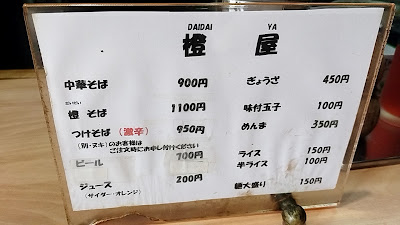 DAIDAI YA
橙 屋
中華そば 900円
だいだい
橙 そば 1100円
つけそば (激辛) 950円
(別・ヌキ)のお客様は
ご注文時にお申し付けください
ビール 700円
ジュース 200円
(サイダー・オレンジ)
ぎょうざ 450円
味付玉子 100円
めんま 350円
ライス 150円
半ライス 100円
麺大盛り 150円